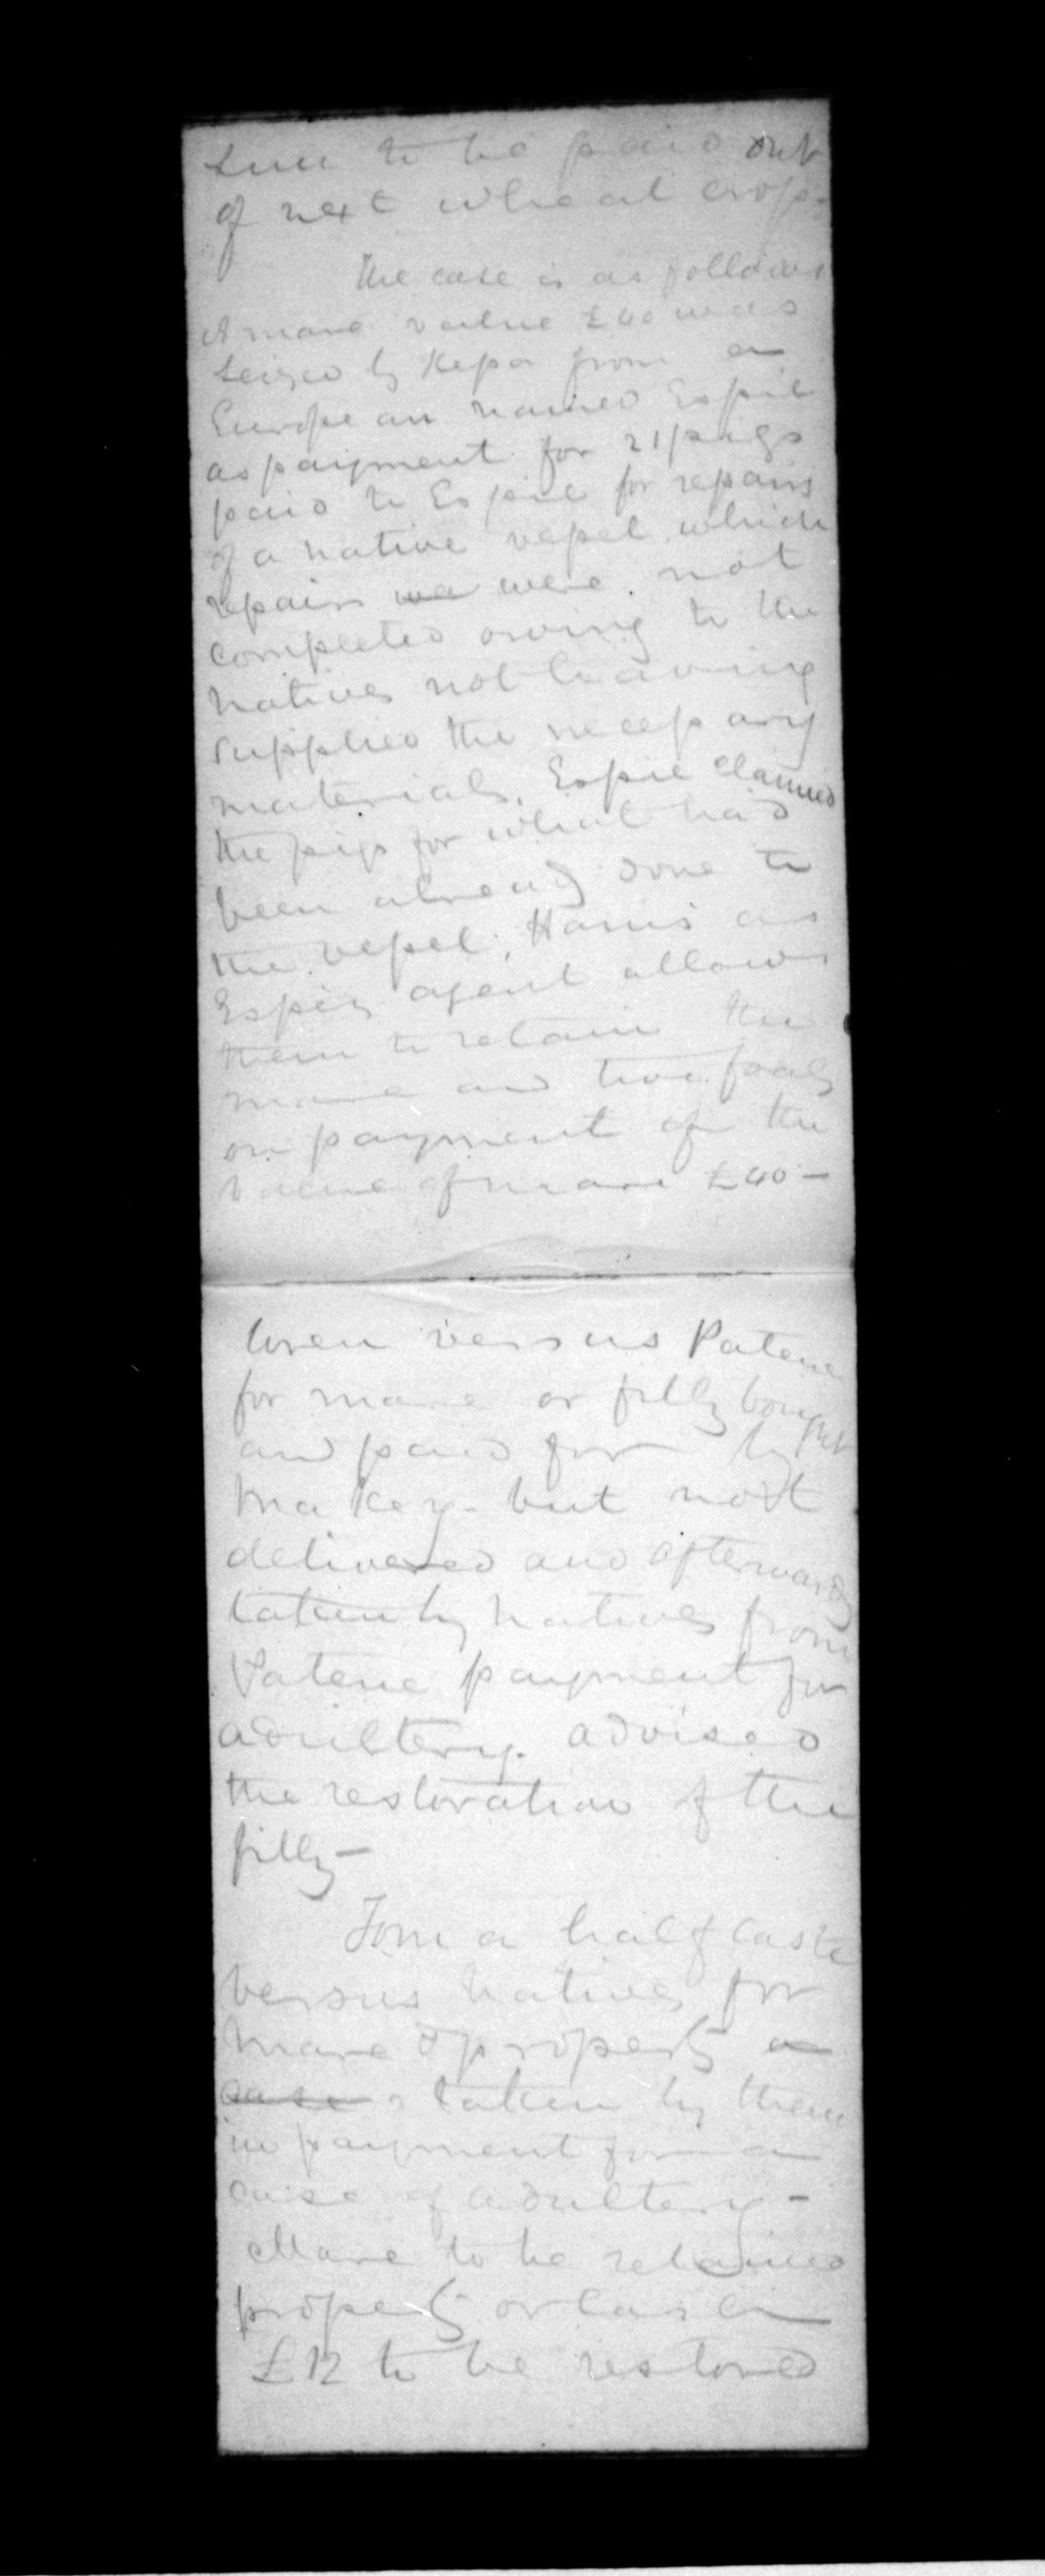 to be paid out
of next wheat crop.
The case is as follows
A mare value £40 was
seized by Kepa from a
European named Espie
as payment for 21 pigs
paid to Espie for repairs
of a native vessel which
repairs we were not
completed owing to the
natives not having
supplied the necessary
materials. Espie claimed
the pigs for what had
been already done to
the vessel. Harris as
Espies agent allows
them to retain the
mare and two foals
on payment of the
value of mare £40 -
versus Patene
for mare or filly bought
and paid for by
but not
delivered and afterwards
taken by natives from
Patene payment for
adultery. advised
the restoration of the
filly -
Tom a half caste
versus natives for
mare & property
case taken by them
in payment for a
case of adultery -
Mare to be retained
property or cash
£12 to be restored